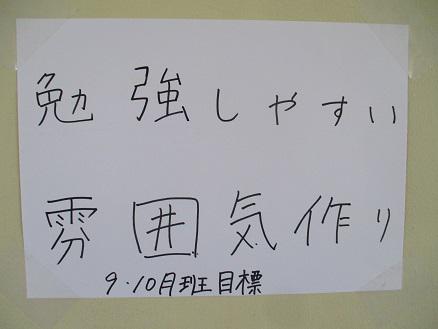 勉強しやすい
雰囲気作り
9・10月班目標